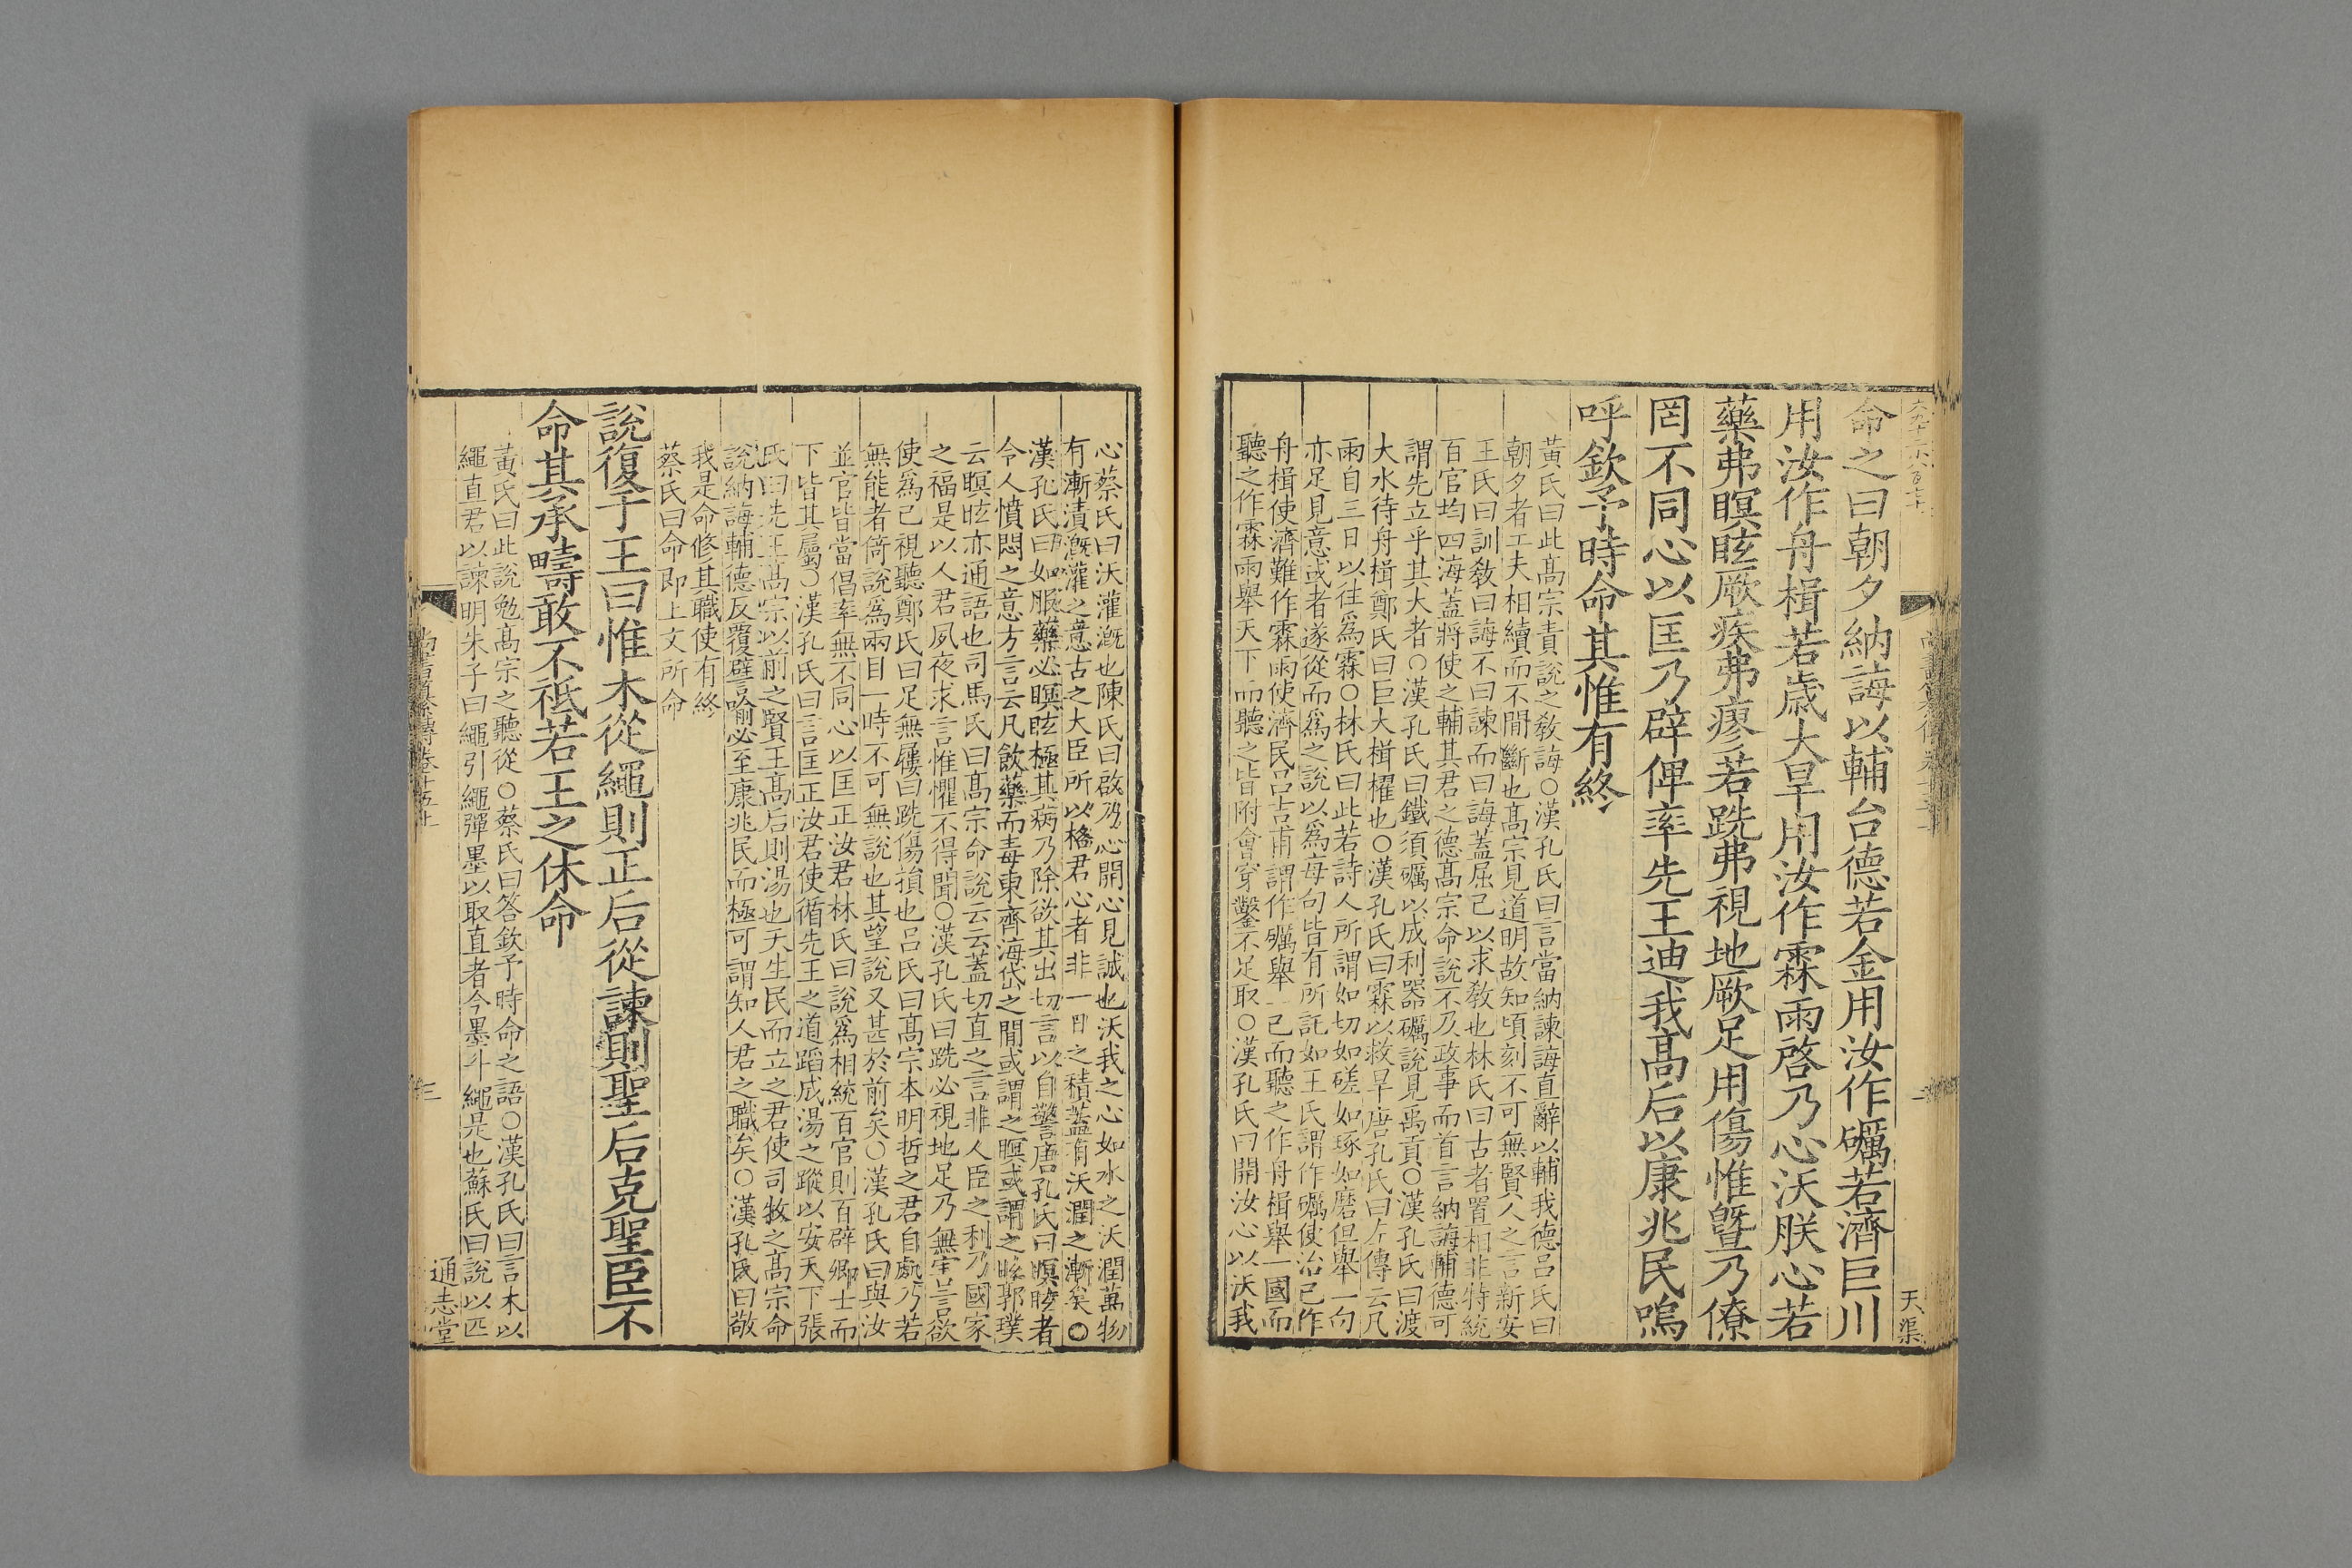 命之曰朝夕納誨以輔台德若金用汝作礪若濟巨川
用汝作舟楫若歲大旱用汝作霖雨啓乃心沃朕心若
藥弗瞑眩厥疾弗瘳若跣弗視地厥足用傷惟曁乃僚
罔不同心以匡乃辟俾率先王迪我高后以康兆民嗚
呼欽予時命其惟有終
黃氏曰此高宗責說之敎誨○漢孔氏曰言當納諫誨直辭以輔我德呂氏曰
朝夕者工夫相續而不間斷也高宗見道明故知頃刻不可無賢人之言新安
王氏曰訓敎曰誨不曰諫而曰誨蓋屈己以求敎也林氏曰古者置相非特統
百官均四海蓋將使之輔其君之德高宗命說不及政事而首言納誨輔德可
謂先立乎其大者○漢孔氏曰鐵須礪以成利器礪說見禹貢○漢孔氏曰渡
大水待舟楫鄭氏曰巨大楫櫂也○漢孔氏曰霖以救旱唐孔氏曰左傳云凡
雨自三日以往爲霖○林氏曰此若詩人所謂如切如磋如琢如磨但舉一句
亦足見意或者遂從而爲之說以爲每句皆有所託如王氏謂作礪使治己作
舟楫使濟難作霖雨使濟民呂吉甫謂作礪舉一己而聽之作舟楫舉一國而
聽之作霖雨舉天下而聽之皆附會穿鑿不足取○漢孔氏曰開汝心以沃我
天渠
心蔡氏曰沃灌漑也陳氏曰啟乃心開心見誠也沃我之心如水之沃潤萬物
有漸漬漑灌之意古之大臣所以格君心者非一日之積蓋有沃潤之漸矣○
漢孔氏曰如服藥必瞑眩極其病乃除欲其出切言以自警唐孔氏曰瞑眩者
令人憤悶之意方言云凡飲藥而毒東齊海岱之間或謂之瞑或謂之眩郭璞
云瞑眩亦通語也司馬氏曰高宗命說云云蓋切直之言非人臣之利乃國家
之福是以人君夙夜求言惟懼不得聞○漢孔氏曰跣必視地足乃無害言欲
使爲己視聽鄭氏曰足無屨曰跣傷損也呂氏曰高宗本明哲之君自處乃若
無能者倚說爲兩目一時不可無說也其望說又甚於前矣○漢孔氏曰與汝
並官皆當倡率無不同心以匡正汝君林氏曰說爲相統百官則百辟卿士而
下皆其屬○漢孔氏曰言匡正汝君使循先王之道蹈成湯之蹤以安天下張
氏曰先王高宗以前之賢王高后則湯也天生民而立之君使司牧之高宗命
說納誨輔德反覆譬喻必至康兆民而極可謂知人君之職矣○漢孔氏曰敬
我是命修其職使有終
蔡氏曰命即上文所命
說復于王曰惟木從繩則正后從諫則聖后克聖臣不
命其承疇敢不祗若王之休命
黃氏曰此說勉高宗之聽從○蔡氏曰答欽予時命之語○漢孔氏曰言木以
繩直君以諫明朱子曰繩引繩彈墨以取直者今墨斗繩是也蘇氏曰說以匹
三
通志堂